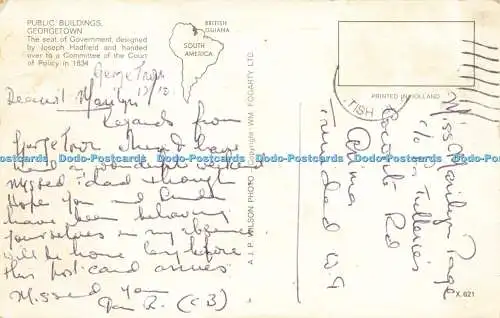 PUBLIC BUILDINGS,
GEORGETOWN
The seat of Government, designed
by Joseph Hadfield and handed
over to a Committee of the Court
of Policy in 1834
BRITISH
GUIANA
SOUTH
AMERICA
Georgetown
Dearest Marilyn
Regards from
Georgetown. I have
had a wonderful weekend
missed dad though
Hope you and
have been behaving
yourselves in my absence
will be home long before
this postcard arrives.
Missed you
A.J.P. WILSON PHOTO Copyright WM. FOGARTY LTD.
PRINTED IN HOLLAND
TISH
Miss Marilyn Page
c/o
Coconut Rd
Trinidad W.I.
X.621
Dodo-Postcards Dodo-Postcards Dodo-Postcards Dodo-Postcards Dodo-Postcards Dodo-Postcards